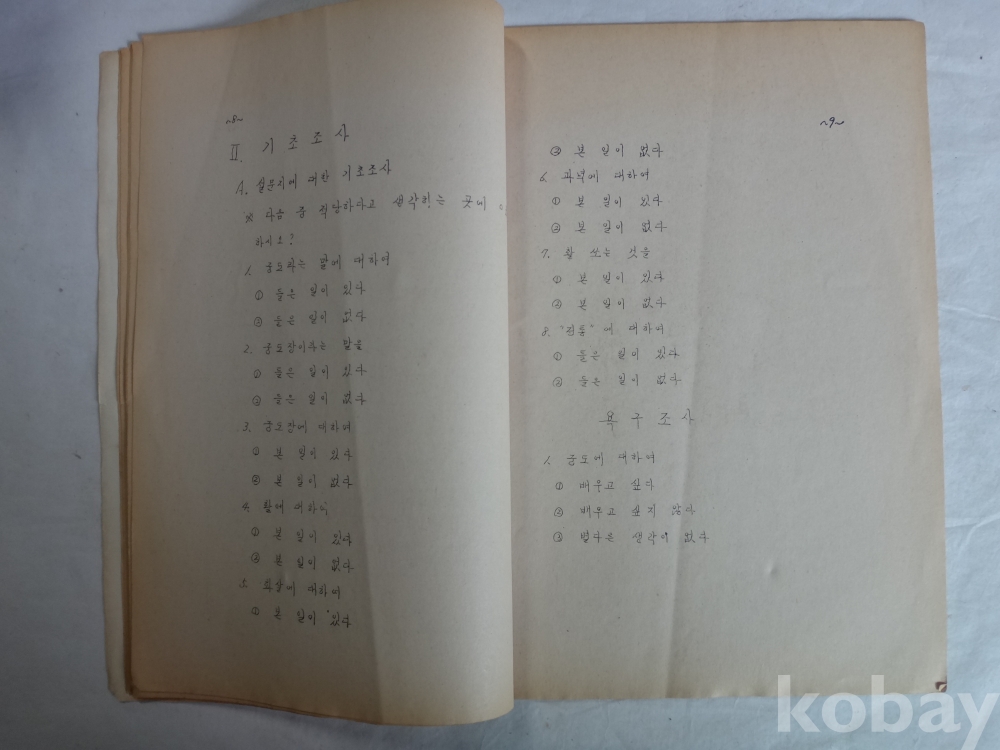 ~8~
II. 기초조사
A. 설문지에 대한 기초조사
※ 다음 중 적당하다고 생각하는 곳에 ㅇ
하시오?
1. 궁도라는 말에 대하여
① 들은 일이 있다
② 들은 일이 없다
2. 궁도장이라는 말을
① 들은 일이 있다
② 들은 일이 없다
3. 궁도장에 대하여
① 본 일이 있다
② 본 일이 없다
4. 활에 대하여
① 본 일이 있다
② 본 일이 없다
5. 화살에 대하여
① 본 일이 있다
~9~
② 본 일이 없다
6. 과녁에 대하여
① 본 일이 있다
② 본 일이 없다
7. 활 쏘는 것을
① 본 일이 있다
② 본 일이 없다
8. "전통"에 대하여
① 들은 일이 있다
② 들은 일이 없다
욕구조사
1. 궁도에 대하여
① 배우고 싶다
② 배우고 싶지 않다
③ 별다른 생각이 없다
kobay